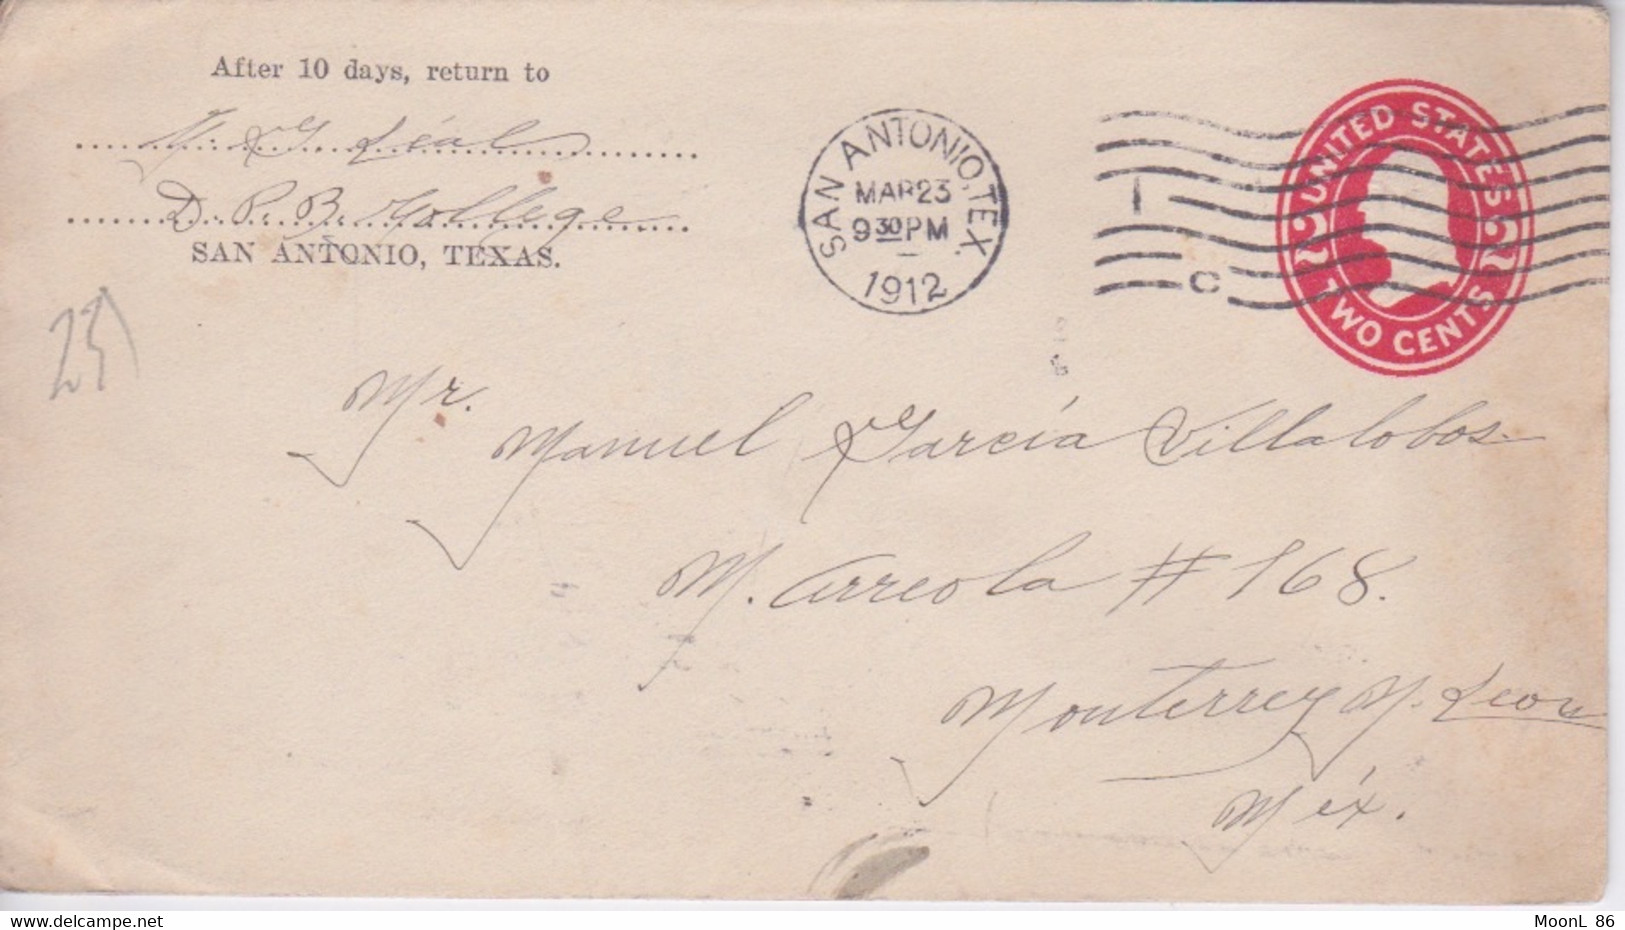 After 10 days, return to
M. G. Leal
D. P. B. College
SAN ANTONIO, TEXAS.
SAN ANTONIO, TEX.
MAR 23
9 30 PM
1912
1
C
UNITED STATES
2 2
TWO CENTS
25
Mr.
Manuel García Villalobos
M. Arreola # 168.
Monterrey N. Leon
Méx.
www.delcampe.net
MoonL 86